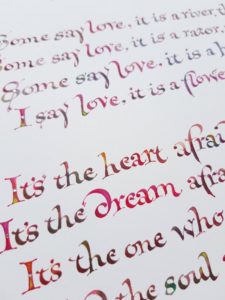 Some say love, it is a river, t
Some say love, it is a razor,
Some say love, it is a h
I say love, it is a flowe
It's the heart afrai
It's the dream afra
It's the one who
the soul